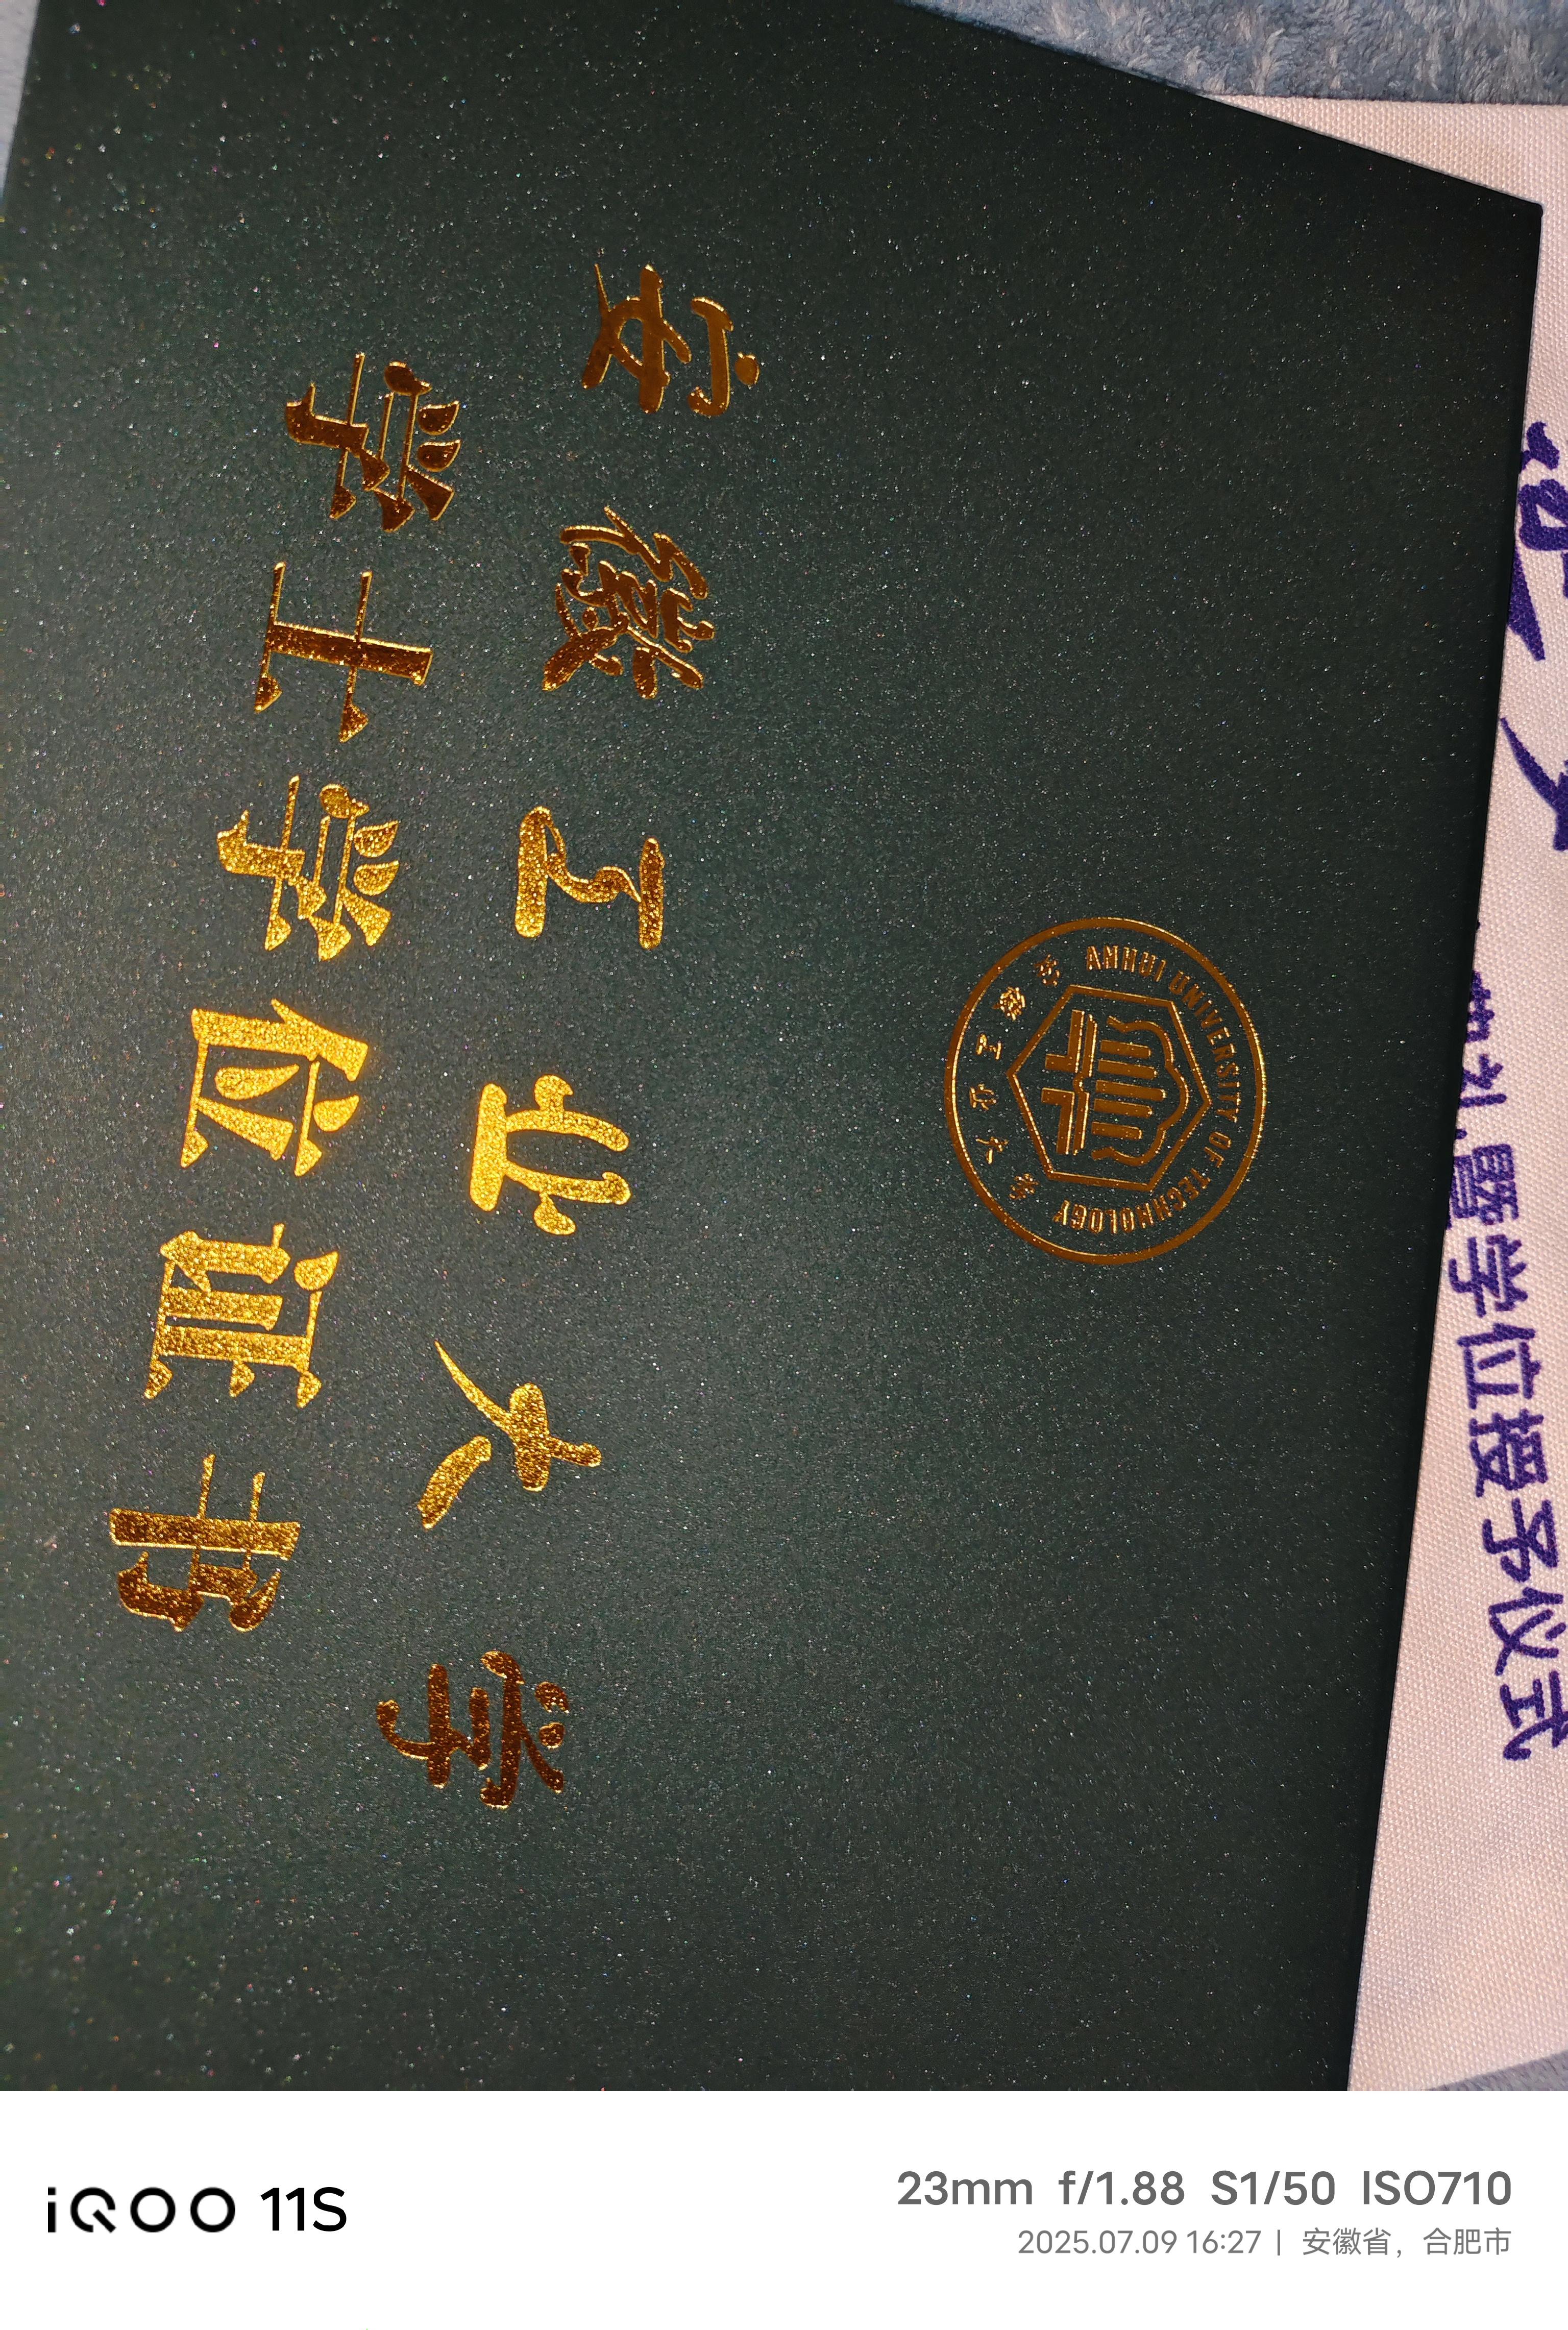 暨学位授予仪式
ANHUI UNIVERSITY OF TECHNOLOGY
安徽工业大学
安徽工业大学
学士学位证书
iQOO 11S
23mm f/1.88 S1/50 ISO710
2025.07.09 16:27 | 安徽省，合肥市